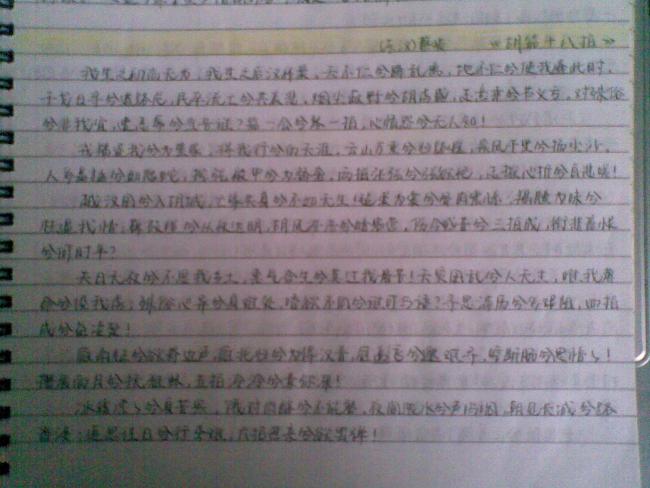 (东汉)蔡琰 《胡笳十八拍》
我生之初尚无为,我生之后汉祚衰,天不仁兮降乱离,地不仁兮使我逢此时,
干戈日寻兮道路危,民卒流亡兮共哀悲,烟尘蔽野兮胡虏盛,志意乖兮节义亏,对殊俗
兮非我宜,兮当告谁?笳一会兮琴一拍,心愤怨兮无人知!
我兮为室家,将我行兮向天涯,云山万重兮归路遐,疾风千里兮扬尘沙,
人多暴猛兮如虺蛇,控弦被甲兮为骄奢,两拍张弦兮弦欲绝,志摧心折兮自悲嗟!
越汉国兮入胡城,亡家失身兮不如无生!毡裘为裳兮骨肉震惊,羯膻为味兮
枉遏我情,兮从夜达明,胡风浩浩兮暗塞营,伤今感昔兮三拍成,衔悲畜恨
兮何时平?
无日无夜兮不思我乡土,禀气含生兮莫过我最苦!天灾国乱兮人无主,唯我薄
命兮没戎虏;殊俗心异兮身难处,嗜欲不同兮谁可与语?寻思涉历兮多艰阻,四拍
成兮益凄楚!
雁南征兮欲寄边声,雁北归兮为得汉音,雁高飞兮邈难寻,空断肠兮思愔愔!
攒眉向月兮抚雅琴,五拍泠泠兮意弥深!
冰霜凛凛兮身苦寒,饥对肉酪兮不能餐,夜闻陇水兮声呜咽,朝见长城兮路
杳漫;追思往日兮行李难,六拍悲来兮欲罢弹!